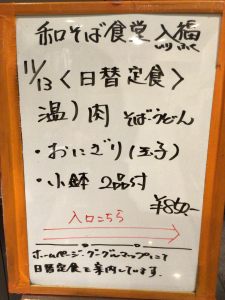 和そば食堂 入猫
11/13 〈日替定食〉
温)肉 そば・うどん
・おにぎり(玉子)
・小鉢 2品付
¥850-
入口こちら
ホームページ・グーグルマップにて
日替定食を案内しています。